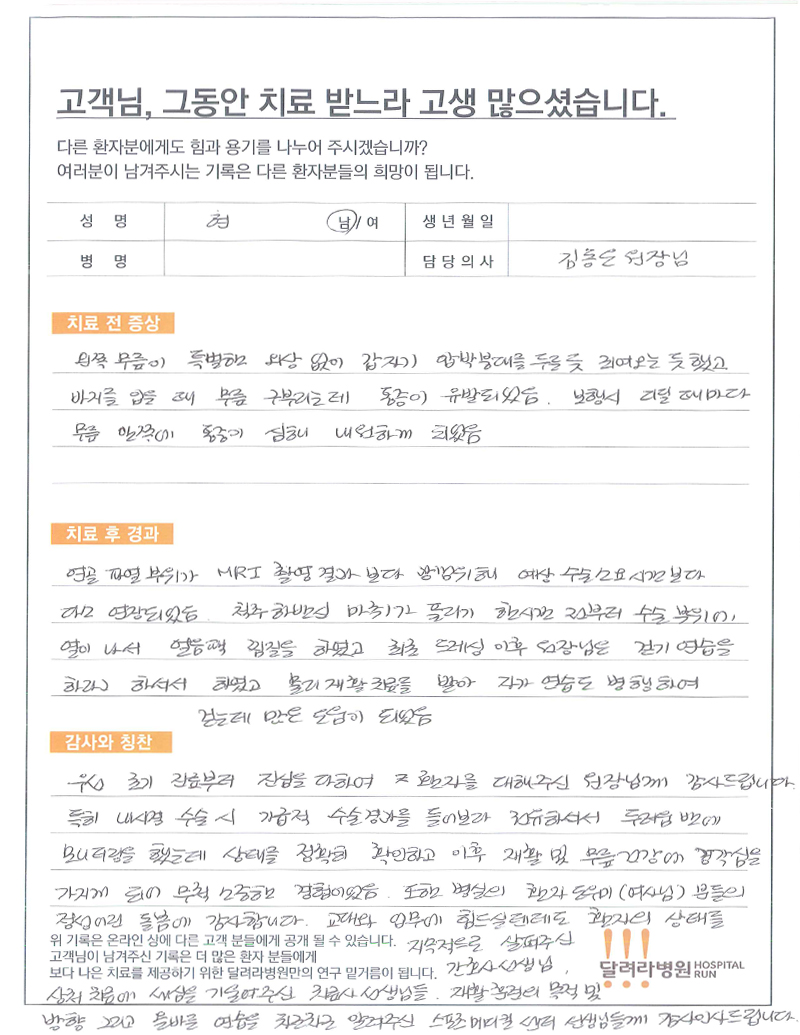 고객님, 그동안 치료 받느라 고생 많으셨습니다.
다른 환자분에게도 힘과 용기를 나누어 주시겠습니까?
여러분이 남겨주시는 기록은 다른 환자분들의 희망이 됩니다.
성 명 남/여 생년월일
병 명 담당의사 김용은 원장님
치료 전 증상
왼쪽 무릎이 특별한 외상 없이 갑자기 압박붕대를 두를 듯 죄여오는 듯 했고
바지를 입을 때 무릎 구부리는데 통증이 유발되었음. 보행시 디딜 때마다
무릎 안쪽에 통증이 심해 내원하게 되었음
치료 후 경과
연골 파열 부위가 MRI 촬영 결과 보다 광범위해 예상 수술소요시간보다
다소 연장되었음. 척추하반신 마취가 풀리기 한시간 전부터 수술 부위에,
열이 나서 얼음팩 찜질을 하였고 최초 드레싱 이후 원장님은 걷기 연습을
하라고 하셔서 하였고 물리재활치료를 받아 자가 연습도 병행하여
걷는데 많은 도움이 되었음
감사와 칭찬
우선 초기 진료부터 진심을 다하여 환자를 대해주신 원장님께 감사드립니다.
특히 내시경 수술 시 가급적 수술경과를 들어보라 권유하셔서 두려움 반에
모니터링을 했는데 상태를 정확히 확인하고 이후 재활 및 무릎건강에 경각심을
가지게 되어 무척 소중한 경험이었음. 또한 병실의 환자 도우미(여사님) 분들의
정성어린 돌봄에 감사합니다. 교대와 업무에 힘드실텐데도 환자의 상태를
위 기록은 온라인 상에 다른 고객 분들에게 공개 될 수 있습니다. 살펴주신
고객님이 남겨주신 기록은 더 많은 환자 분들에게
보다 나은 치료를 제공하기 위한 달려라병원만의 연구 밑거름이 됩니다. 간호사선생님,
달려라병원 HOSPITAL RUN
상처 치료에 세심을 기울여주신 치료사 선생님들. 재활훈련의 목적 및
방향 그리고 올바른 연습을 차근차근 알려주신 스포츠메디컬 센터 선생님들께 감사인사드립니다.